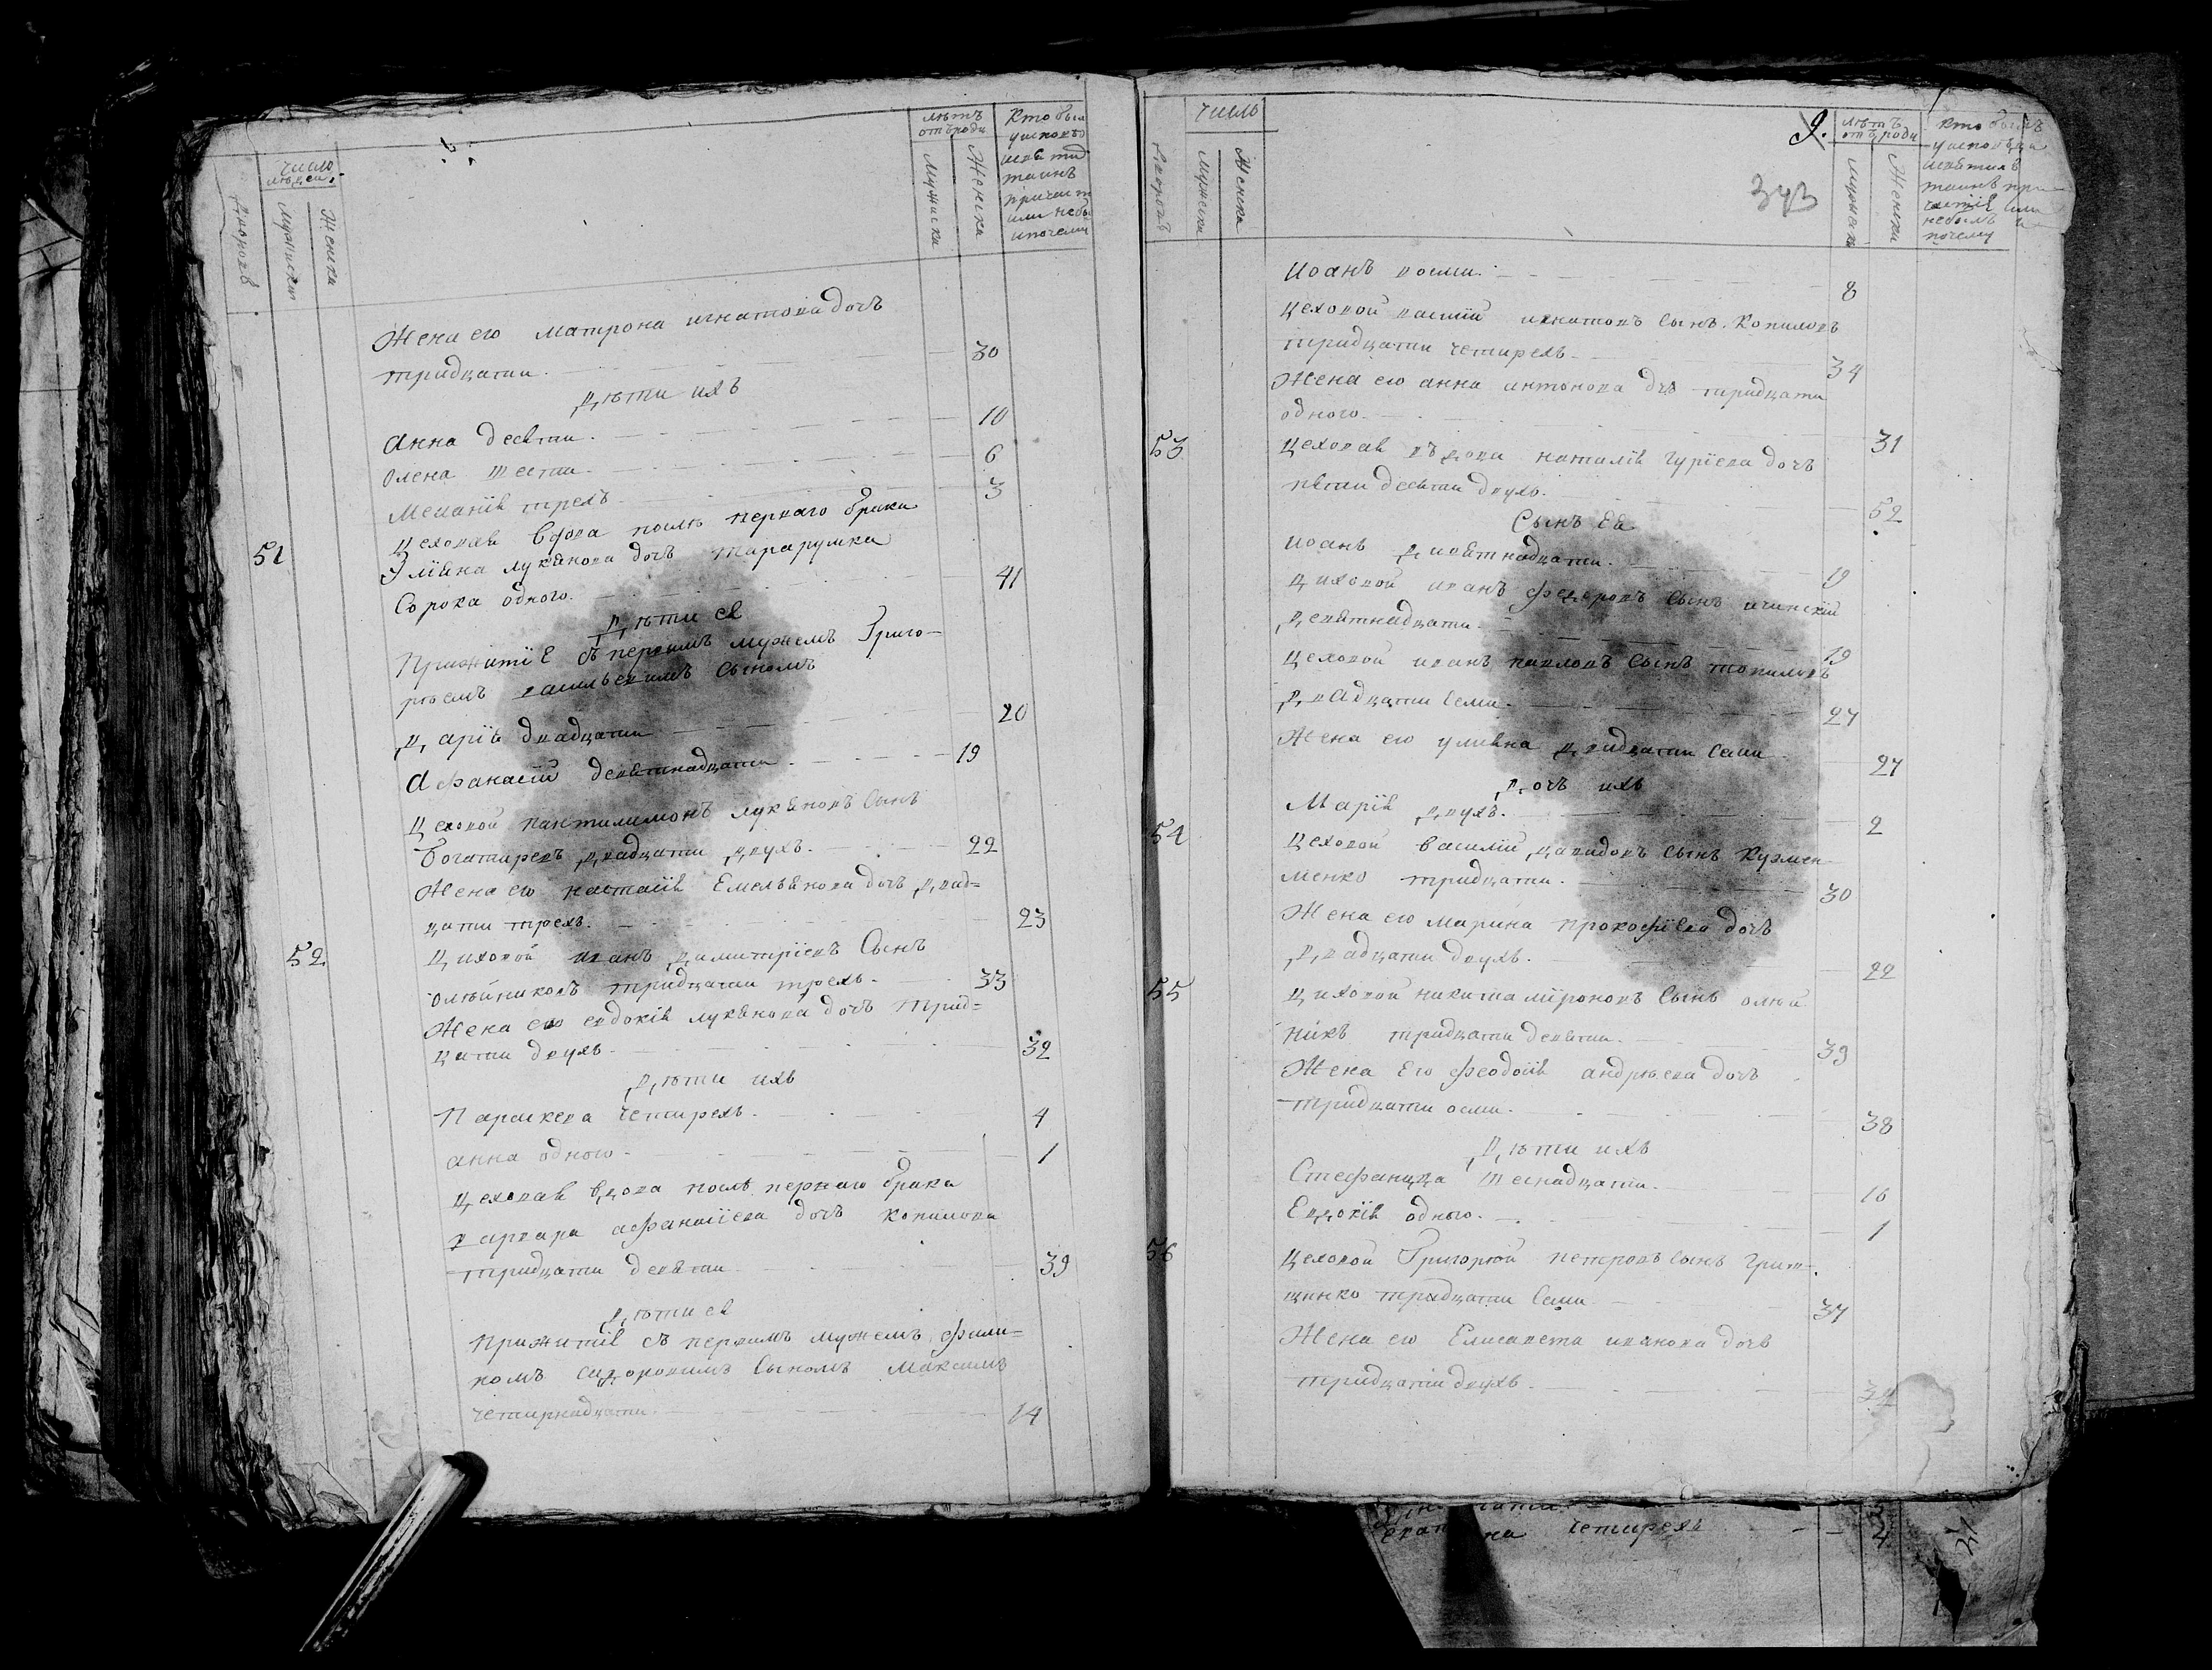 число
людей
дворовъ
мужеска
женска
летъ
отъ роду
мужеска
женска
Кто былъ
у исповеди
и свѧ тыхъ
таинъ
причаст
или небы
и почему
Жена его матрона игнатова дочъ
тридцати 30
дѣти ихъ
Анна десѧти 10
Олена шести 6
Меланіѧ трехъ 3
51 Цеховаѧ вдова послѣ перваго брака
Улїѧна лукѧнова дочъ тарарушка
Сорока одного 41
дѣти еѧ
Прижитїе съ первимъ мужемъ Григо-
рѣемъ васильевимъ сыномъ
Дарїѧ двадцати 20
Афанасїй девѧтнадцати 19
Цеховой пантилимонъ лукѧновъ сынъ
Богатиревъ двадцати двухъ 22
Жена его настасїѧ Емельѧнова дочъ двад=
цати трехъ 23
52 Циховой иванъ димитрїевъ Сынъ
олѣйниковъ тридцати трехъ 33
Жена его евдокїѧ лукѧнова дочъ трид=
цати двухъ 32
дѣти ихъ
Параскева четирехъ 4
анна одного 1
цеховаѧ вдова послѣ перваго брака
варвара афанасїева дочъ копилова
тридцати девѧти 39
дѣти еѧ
прижитїѧ съ первимъ мужемъ фили=
помъ сидоровимъ сыномъ Максимъ
четирнадцати 14
9.
343
число
дворовъ
мужеска
женска
летъ
отъ роду
мужеска
женска
Кто былъ
у исповеди
и свѧтихъ
таинъ при-
частїѧ или
небылъ и
почему
Иоанъ восми 8
цеховой василїй игнатовъ сынъ Копиловъ
тридцати четирехъ 34
Жена его анна антонова дчъ тридцати
одного 31
53 цеховаѧ въдова наталїѧ гурїева дочъ
пѧтидесѧти двухъ 52
Сынъ еѧ
Иоанъ девѧтнадцати 19
Циховой иванъ федоровъ сынъ ичинскїй
девѧтнадцати 19
Цеховой иванъ павловъ сынъ топиловъ
двадцати семи 27
Жена его улиѧна двидцати семи 27
дочъ ихъ
Марїѧ двухъ 2
54 цеховой василїй давидовъ сынъ Кузмен
менко тридцати 30
Жена его марина прокофїева дочъ
двадцати двухъ 22
55 Циховой никита мїроновъ Сынъ олѣй
никъ тридцати девѧти 39
Жена Его феодосїѧ андрѣева дочъ
тридцати осми 38
дѣти ихъ
Стефанида шеснадцати 16
Евдокїѧ одного 1
56 Цеховой Григорѣй петровъ сынъ Гриш-
щинко тридцати семи 37
Жена его Елисавета иванова дочъ
тридцати двухъ 32
четирехъ 4